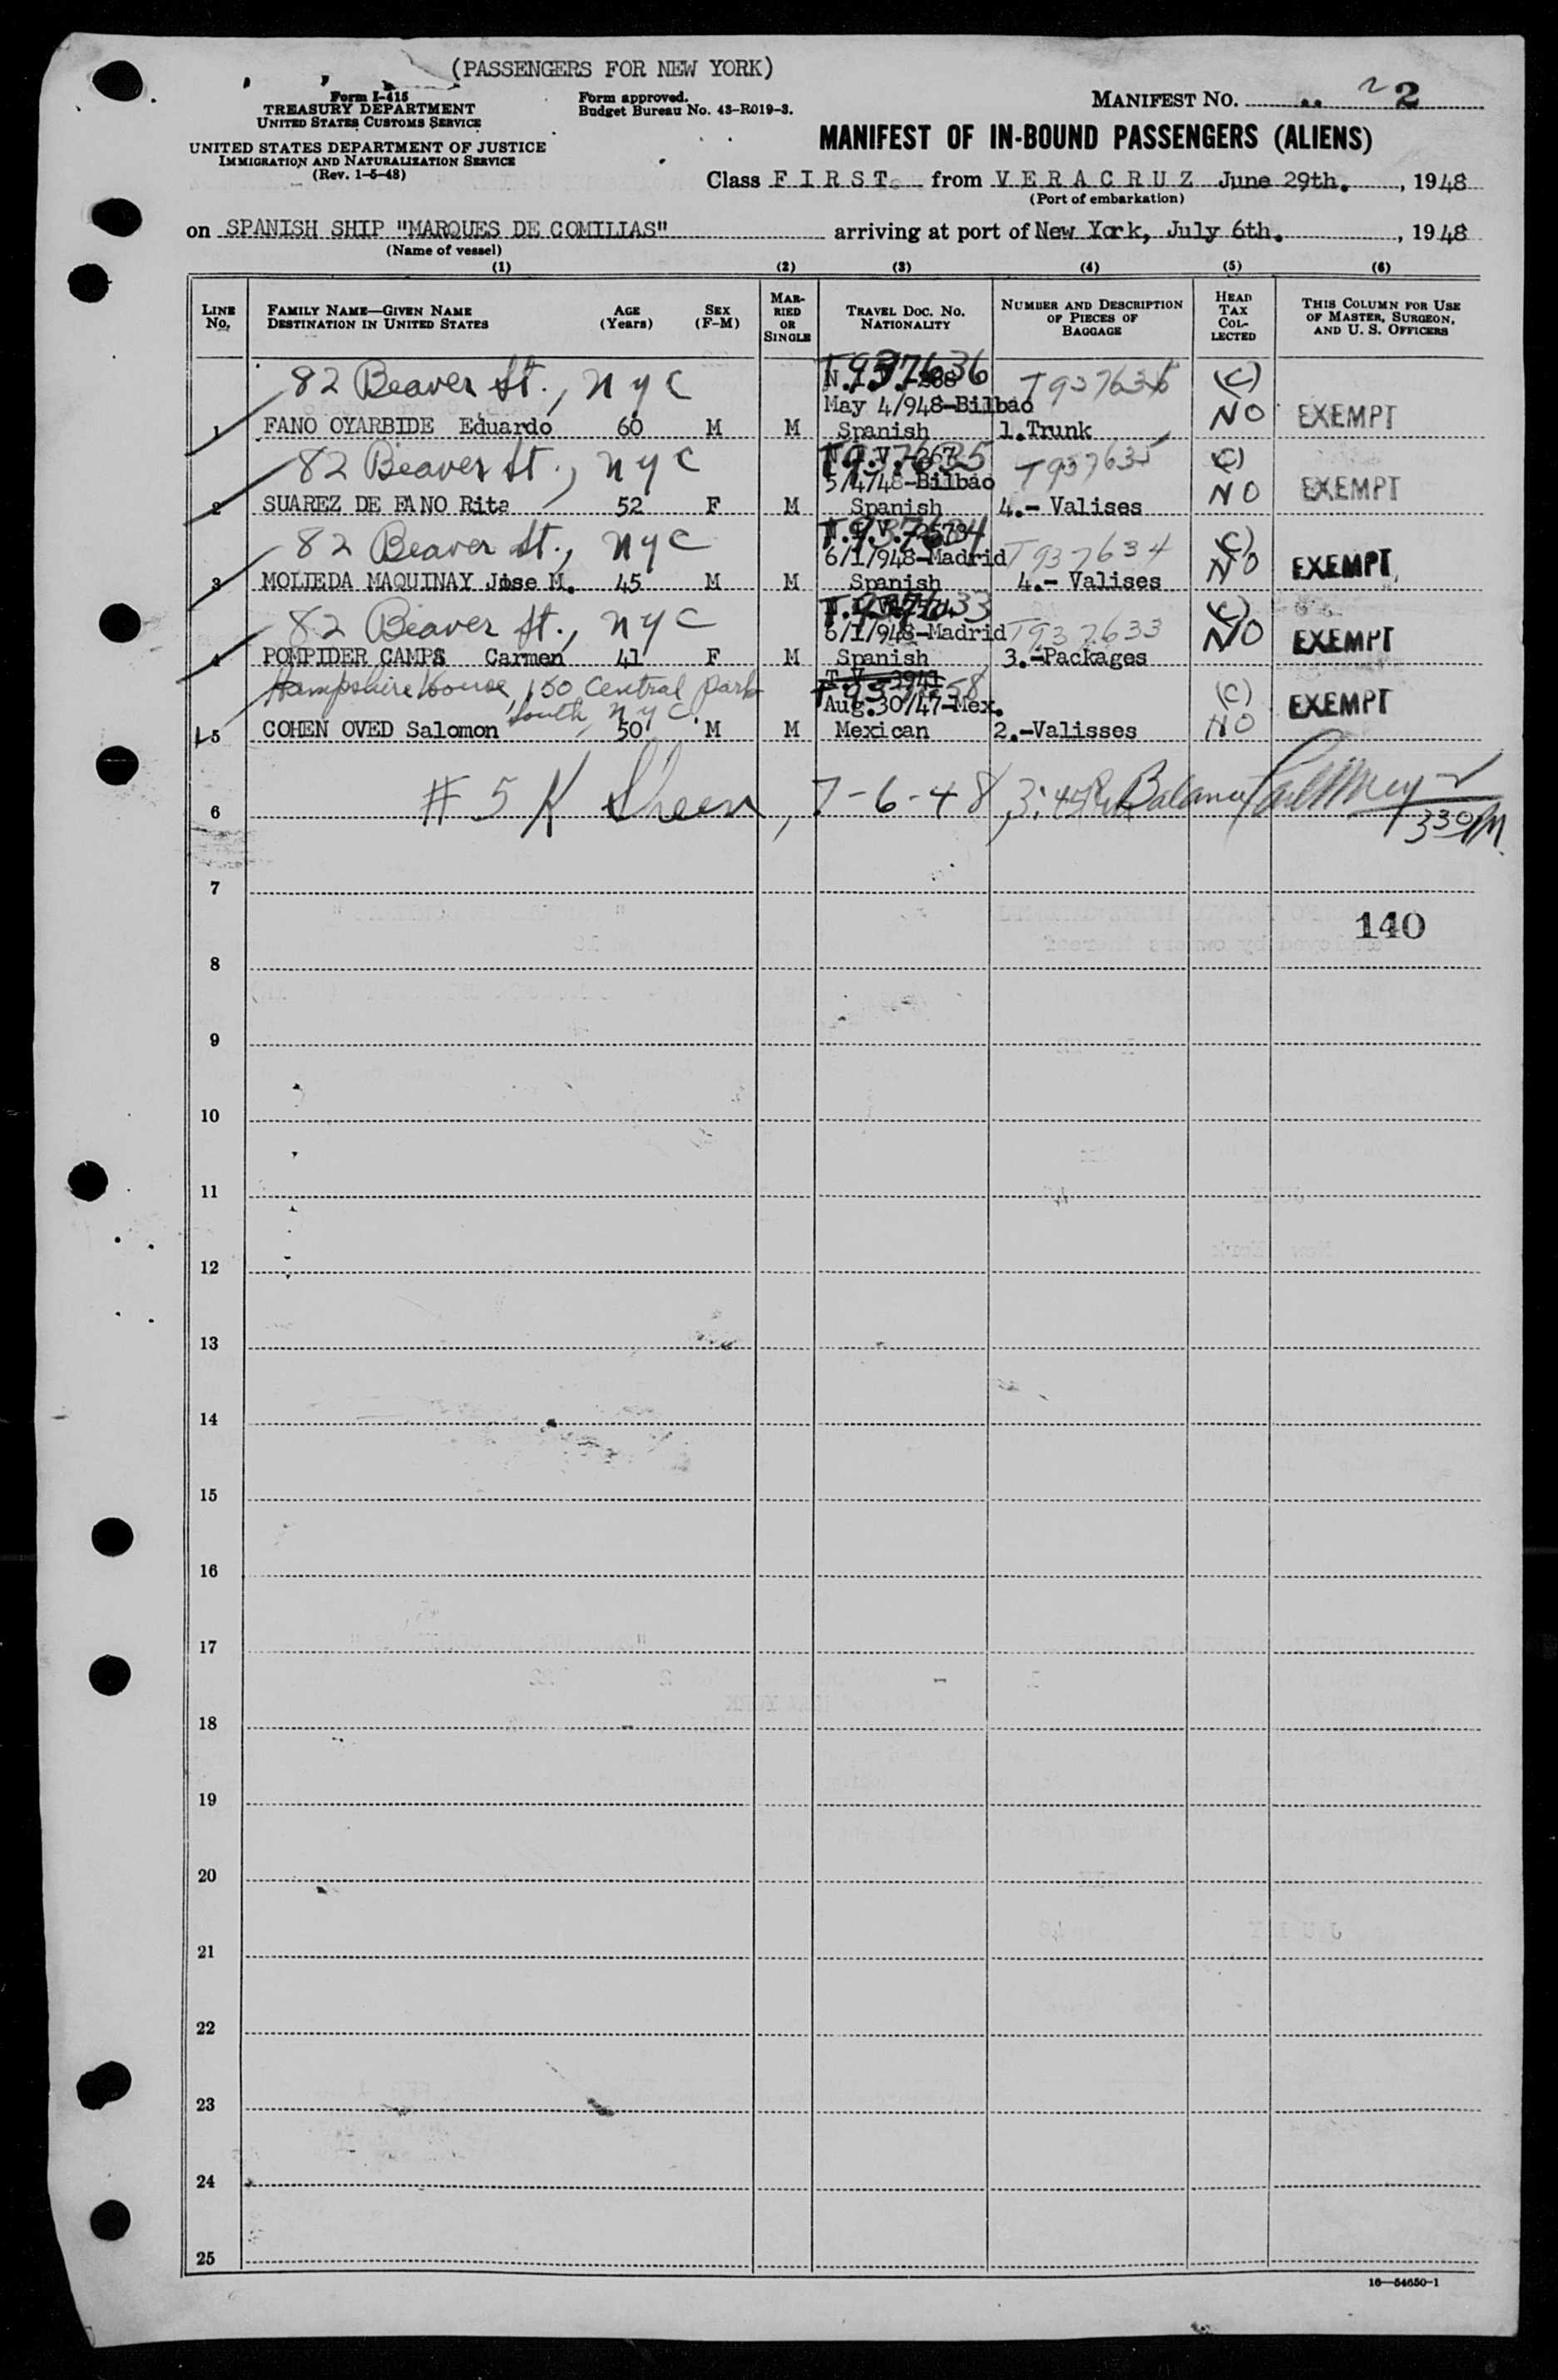 (PASSENGERS FOR NEW YORK)
Form I-415
TREASURY DEPARTMENT
UNITED STATES CUSTOMS SERVICE
UNITED STATES DEPARTMENT OF JUSTICE
IMMIGRATION AND NATURALIZATION SERVICE
(Rev. 1-5-48)
Form approved.
Budget Bureau No. 43-R019-3.
MANIFEST NO. 2 2
MANIFEST OF IN-BOUND PASSENGERS (ALIENS)
Class F I R S T. from V E R A C R U Z June 29th. , 1948
(Port of embarkation)
on SPANISH SHIP "MARQUES DE COMILIAS" arriving at port of New York, July 6th. , 1948
(Name of vessel)
(1) (2) (3) (4) (5) (6)
LINE No. FAMILY NAME—GIVEN NAME DESTINATION IN UNITED STATES AGE (Years) SEX (F-M) MARRIED OR SINGLE TRAVEL DOC. NO. NATIONALITY NUMBER AND DESCRIPTION OF PIECES OF BAGGAGE HEAD TAX COLLECTED THIS COLUMN FOR USE OF MASTER, SURGEON, AND U. S. OFFICERS
82 Beaver St., NYC T937636 T937636 (C)
May 4/948-Bilbao
1 FANO OYARBIDE Eduardo 60 M M Spanish 1.Trunk NO EXEMPT
82 Beaver St., NYC T937635 T937635 (C)
5/4/48-Bilbao
2 SUAREZ DE FANO Rita 52 F M Spanish 4.- Valises NO EXEMPT
82 Beaver St., NYC T937634 T937634 (C)
6/1/948-Madrid
3 MOLIEDA MAQUINAY Jose M. 45 M M Spanish 4.- Valises NO EXEMPT
82 Beaver St., NYC T937633 T937633 (C)
6/1/948-Madrid
4 POMPIDER CAMPS Carmen 41 F M Spanish 3.-Packages NO EXEMPT
Hampshire House, 150 Central Park South, NYC T.V. 3941 (C)
Aug.30/47-Mex.
5 COHEN OVED Salomon 50 M M Mexican 2.-Valisses NO EXEMPT
6 # 5 K Sheen, 7-6-48, 3:45 PM Balance 330PM
7
140
8
9
10
11
12
13
14
15
16
17
18
19
20
21
22
23
24
25
16—54650-1